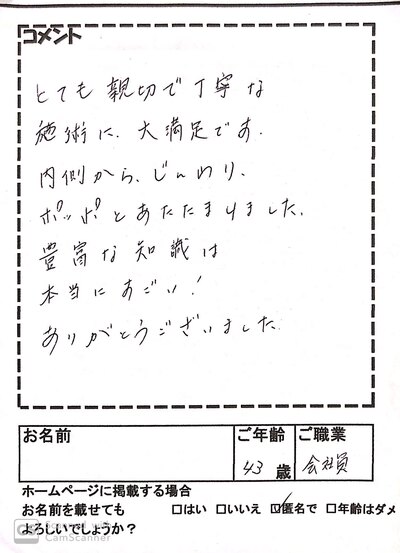 コメント
とても親切で丁寧な
施術に、大満足です。
内側から、じんわり、
ポッポとあたたまりました。
豊富な知識は
本当にすごい!
ありがとうございました。
お名前 ご年齢 ご職業
43 歳 会社員
ホームページに掲載する場合
お名前を載せても □はい □いいえ ☑匿名で □年齢はダメ
よろしいでしょうか?
CamScanner